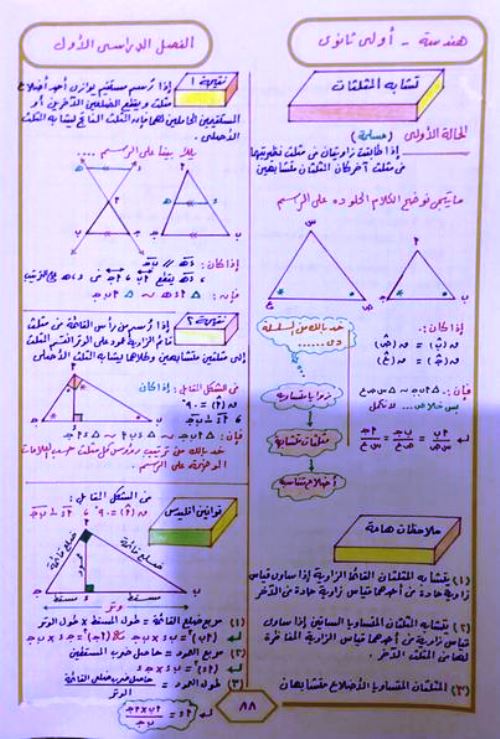 هندسة - أولى ثانوى
الفصل الدراسى الأول
تشابه المثلثات
الحالة الأولى (مسلمة)
إذا طابقت زاويتان فى مثلث نظيرتيهما
فى مثلث آخر كان المثلثان متشابهين
ما يتيجى نوضح الكلام الحلو ده على الرسم
س
ع
ص
م
ج
ب
إذا كان:
ق(ب̂) = ق(ص̂)
ق(ج̂) = ق(ع̂)
فإن: △ م ب ج ~ △ س ص ع
بس خلاص... لا نكمل
م ب / س ص = ب ج / ص ع = م ج / س ع
خد بالك من السلسلة
دى ......
زوايا متساوية
مثلثات متشابهة
أضلاع متناسبة
ملاحظات هامة
(١) يتشابه المثلثان القائما الزاوية إذا ساوى قياس
زاوية حادة من أحدهما قياس زاوية حادة من الآخر
(٢) يتشابه المثلثان المتساويا الساقين إذا ساوى
قياس زاوية من أحدهما قياس الزاوية المناظرة
لها من المثلث الآخر.
(٣) المثلثان المتساويا الأضلاع متشابهان
نتيجة ١
إذا رُسم مستقيم يوازى أحد أضلاع
مثلث ويقطع الضلعين الآخرين أو
المستقيمين الحاملين لهما فإن المثلث الناتج يشابه المثلث
الأصلى.
يلا بينا على الرسم ....
إذا كان: د هـ // ب ج
، د هـ يقطع م ب ، م ج فى د ، هـ على الترتيب
فإن: △ م د هـ ~ △ م ب ج
نتيجة ٢
إذا رُسم من رأس القائمة فى مثلث
قائم الزاوية عمود على الوتر انقسم المثلث
إلى مثلثين متشابهين وكلاهما يشابه المثلث الأصلى
فى الشكل المقابل: إذا كان
ق(م̂) = ٩٠°
، م د ⊥ ب ج
فإن: △ م ب ج ~ △ د ب م ~ △ د م ج
خد بالك من ترتيب رؤوس كل مثلث حسب العلامات
الموضحة على الرسم.
قوانين اقليدس
فى الشكل المقابل:
ق(م̂) = ٩٠° ، م د ⊥ ب ج
ضلع قائمة
ضلع قائمة
عمود
مسقط
مسقط
وتر
(١) مربع ضلع القائمة = طول المسقط × طول الوتر
(م ب)² = ب د × ب ج ، (م ج)² = ج د × ج ب
(٢) مربع العمود = حاصل ضرب المسقطين
(م د)² = ب د × ج د
(٣) طول العمود = حاصل ضرب ضلعى القائمة / الوتر
م د = م ب × م ج / ب ج
٨٨